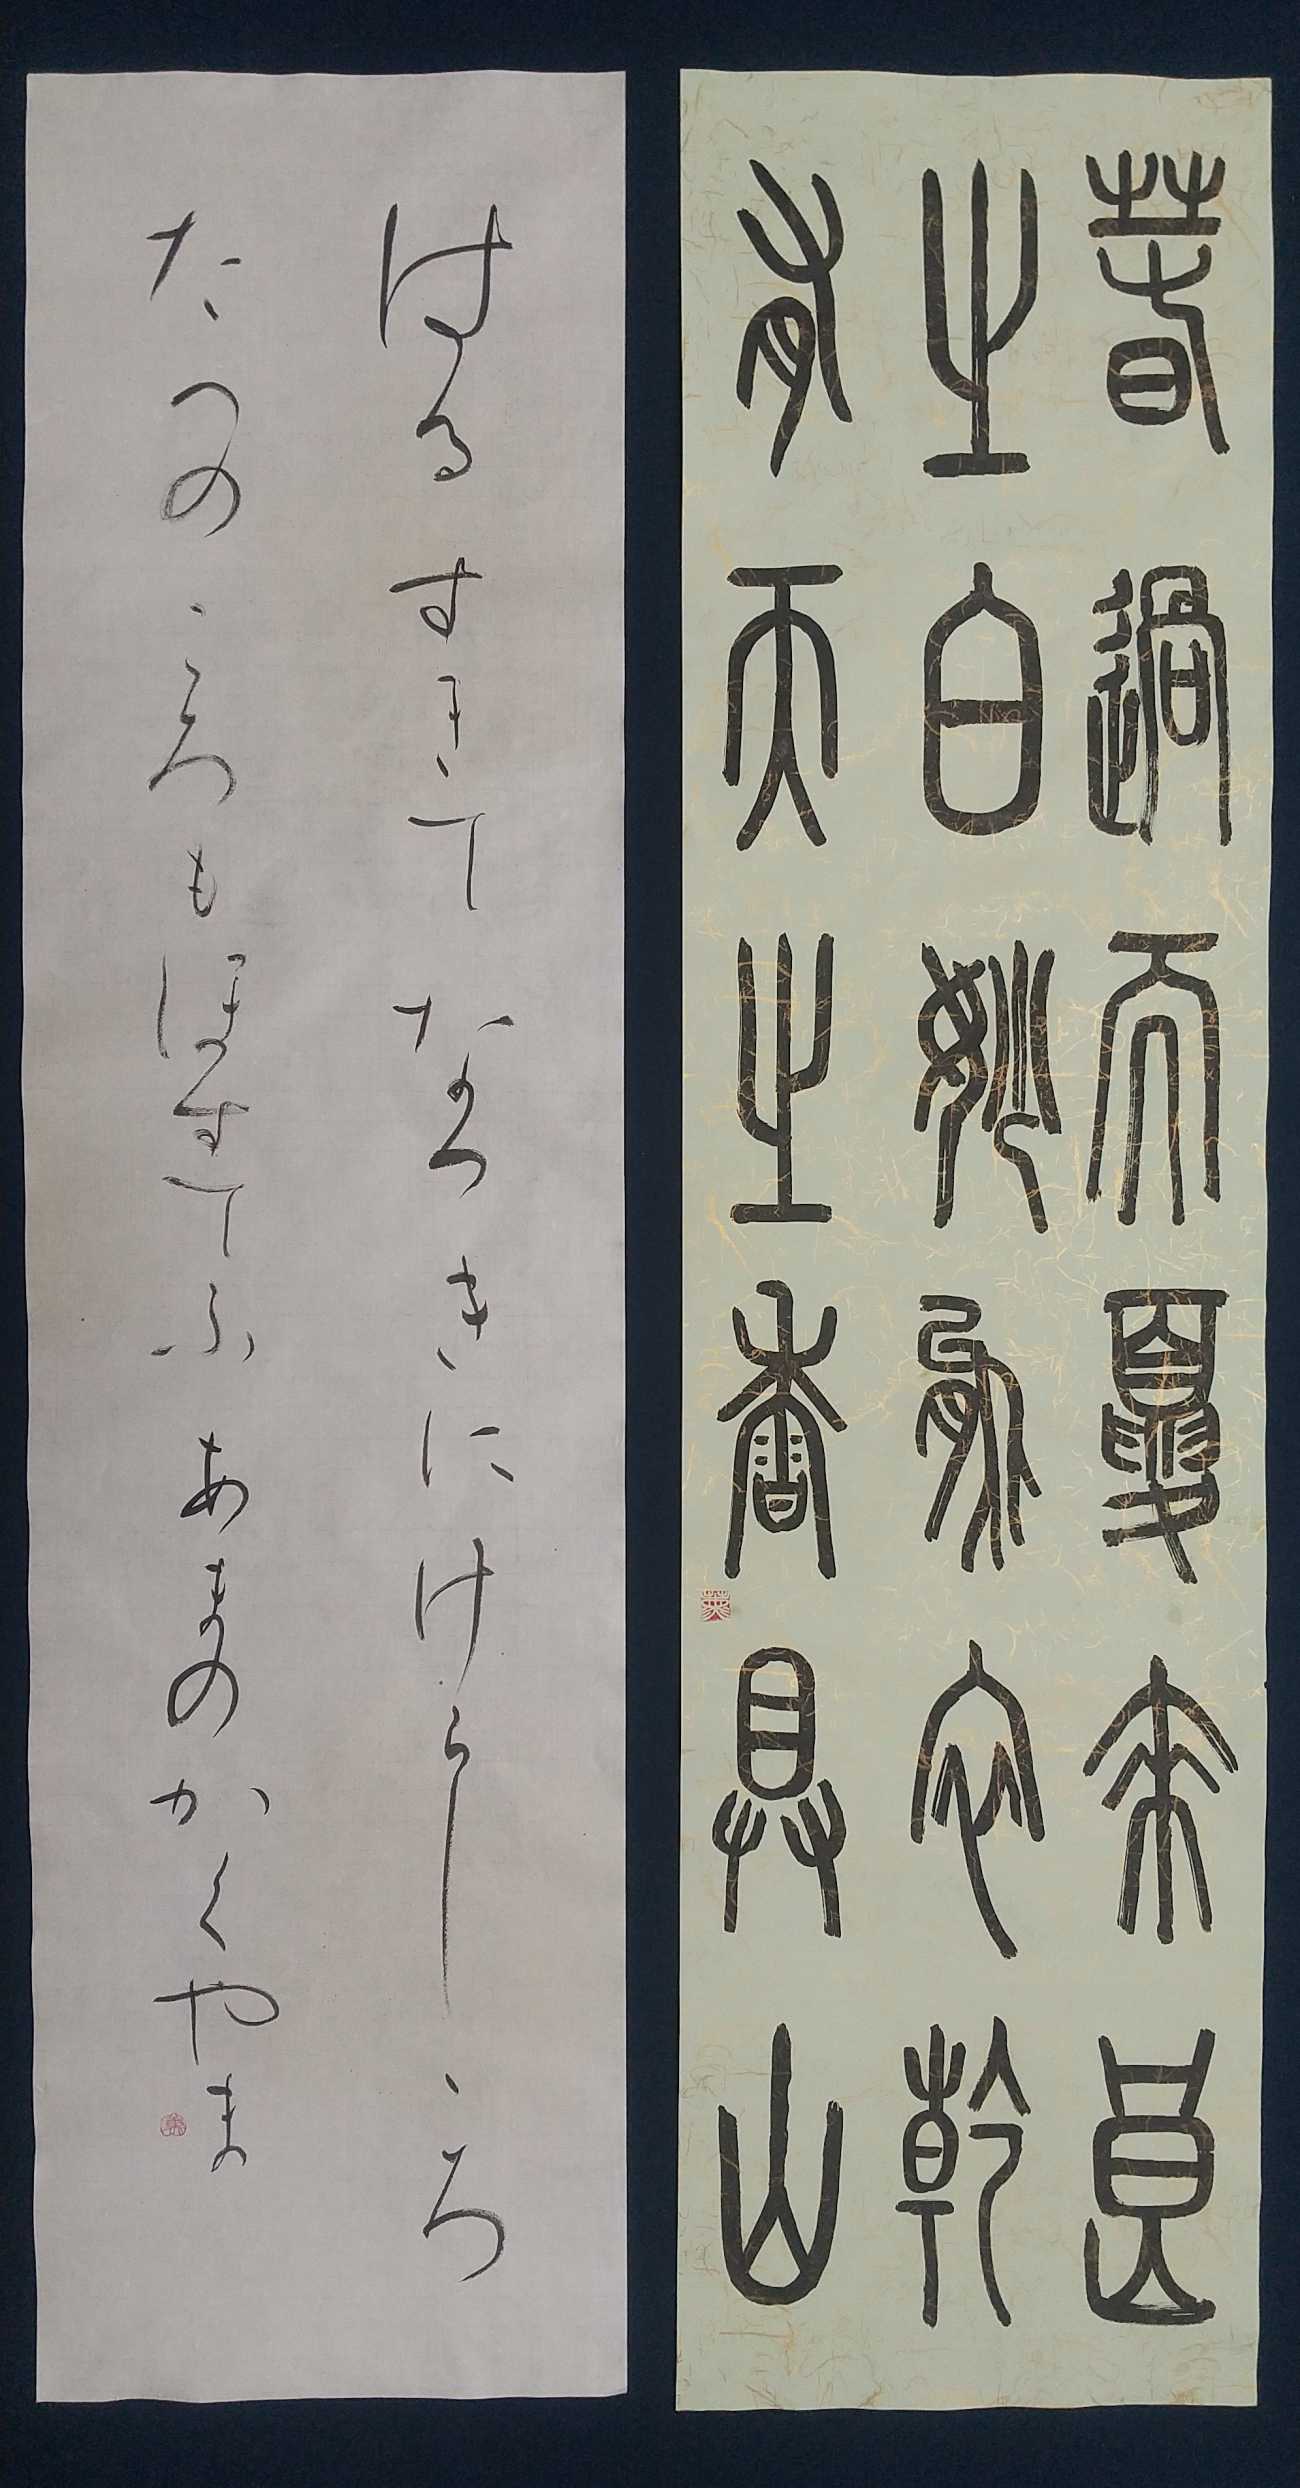 春過而夏来良
之白妙能衣乾
有天之香具山
はるすきてなつきにけらしゝろ
たへのころもほすてふあまのかくやま